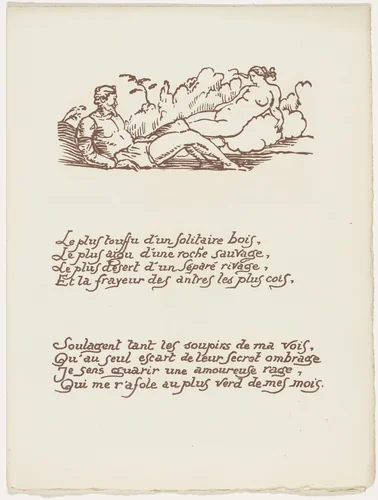 Le plus touffu d'un solitaire bois,
Le plus aigu d'une roche sauvage,
Le plus desert d'un separé rivage,
Et la frayeur des antres les plus cois,
Soulagent tant les soupirs de ma vois,
Qu'au seul escart de leur secret ombrage
Je sens guarir une amoureuse rage,
Qui me r'afole au plus verd de mes mois.